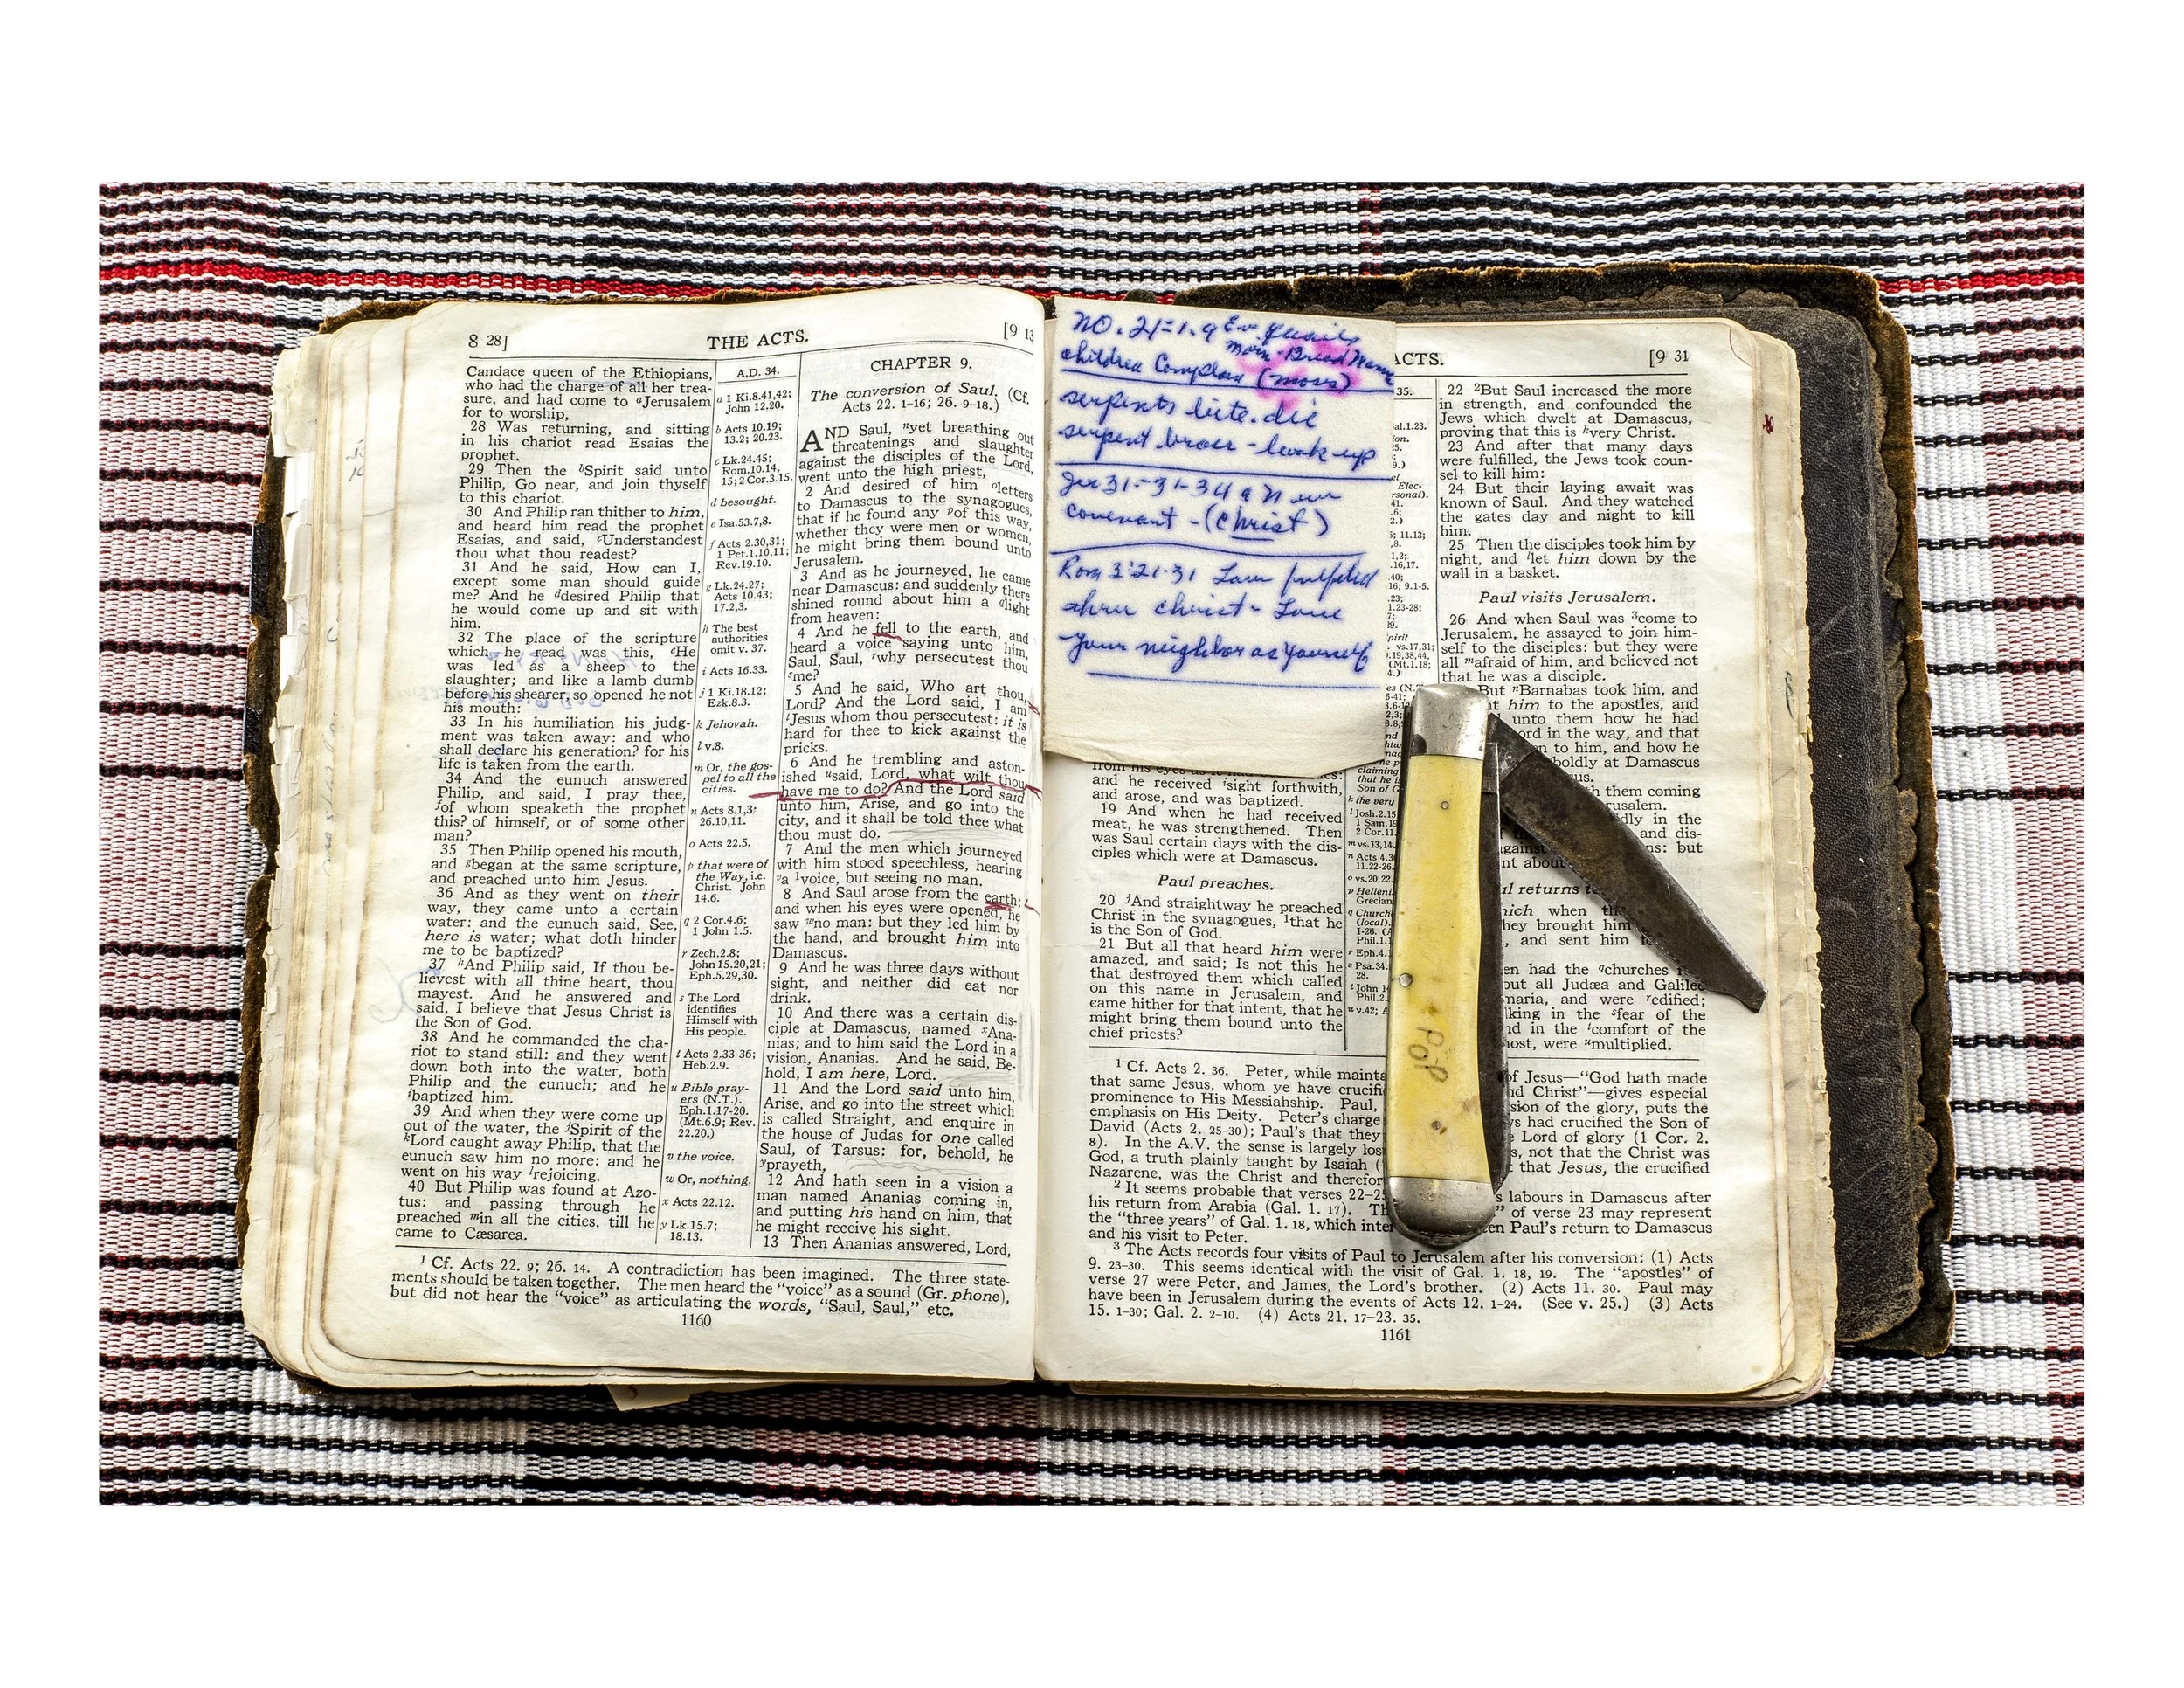 8 28] THE ACTS. [9 13
Candace queen of the Ethiopians,
who had the charge of all her trea-
sure, and had come to aJerusalem
for to worship,
28 Was returning, and sitting
in his chariot read Esaias the
prophet.
29 Then the bSpirit said unto
Philip, Go near, and join thyself
to this chariot.
30 And Philip ran thither to him,
and heard him read the prophet
Esaias, and said, cUnderstandest
thou what thou readest?
31 And he said, How can I,
except some man should guide
me? And he ddesired Philip that
he would come up and sit with
him.
32 The place of the scripture
which he read was this, eHe
was led as a sheep to the
slaughter; and like a lamb dumb
before his shearer, so opened he not
his mouth:
33 In his humiliation his judg-
ment was taken away: and who
shall declare his generation? for his
life is taken from the earth.
34 And the eunuch answered
Philip, and said, I pray thee,
fof whom speaketh the prophet
this? of himself, or of some other
man?
35 Then Philip opened his mouth,
and gbegan at the same scripture,
and preached unto him Jesus.
36 And as they went on their
way, they came unto a certain
water: and the eunuch said, See,
here is water; what doth hinder
me to be baptized?
37 hAnd Philip said, If thou be-
lievest with all thine heart, thou
mayest. And he answered and
said, I believe that Jesus Christ is
the Son of God.
38 And he commanded the cha-
riot to stand still: and they went
down both into the water, both
Philip and the eunuch; and he
ibaptized him.
39 And when they were come up
out of the water, the jSpirit of the
kLord caught away Philip, that the
eunuch saw him no more: and he
went on his way lrejoicing.
40 But Philip was found at Azo-
tus: and passing through he
preached min all the cities, till he
came to Cæsarea.
A.D. 34.
a 1 Ki.8.41,42;
John 12.20.
b Acts 10.19;
13.2; 20.23.
c Lk.24.45;
Rom.10.14,
15; 2 Cor.3.15.
d besought.
e Isa.53.7,8.
f Acts 2.30,31;
1 Pet.1.10,11;
Rev.19.10.
g Lk.24.27;
Acts 10.43;
17.2,3.
h The best
authorities
omit v. 37.
i Acts 16.33.
j 1 Ki.18.12;
Ezk.8.3.
k Jehovah.
l v.8.
m Or, the gos-
pel to all the
cities.
n Acts 8.1,3;
26.10,11.
o Acts 22.5.
p that were of
the Way, i.e.
Christ. John
14.6.
q 2 Cor.4.6;
1 John 1.5.
r Zech.2.8;
John 15.20,21;
Eph.5.29,30.
s The Lord
identifies
Himself with
His people.
t Acts 2.33-36;
Heb.2.9.
u Bible pray-
ers (N.T.).
Eph.1.17-20.
(Mt.6.9; Rev.
22.20.)
v the voice.
w Or, nothing.
x Acts 22.12.
y Lk.15.7;
18.13.
CHAPTER 9.
The conversion of Saul. (Cf.
Acts 22. 1-16; 26. 9-18.)
AND Saul, nyet breathing out
threatenings and slaughter
against the disciples of the Lord,
went unto the high priest,
2 And desired of him oletters
to Damascus to the synagogues,
that if he found any pof this way,
whether they were men or women,
he might bring them bound unto
Jerusalem.
3 And as he journeyed, he came
near Damascus: and suddenly there
shined round about him a qlight
from heaven:
4 And he fell to the earth, and
heard a voice saying unto him,
Saul, Saul, rwhy persecutest thou
sme?
5 And he said, Who art thou,
Lord? And the Lord said, I am
tJesus whom thou persecutest: it is
hard for thee to kick against the
pricks.
6 And he trembling and aston-
ished usaid, Lord, what wilt thou
have me to do? And the Lord said
unto him, Arise, and go into the
city, and it shall be told thee what
thou must do.
7 And the men which journeyed
with him stood speechless, hearing
va 1voice, but seeing no man.
8 And Saul arose from the earth;
and when his eyes were opened, he
saw wno man: but they led him by
the hand, and brought him into
Damascus.
9 And he was three days without
sight, and neither did eat nor
drink.
10 And there was a certain dis-
ciple at Damascus, named xAna-
nias; and to him said the Lord in a
vision, Ananias. And he said, Be-
hold, I am here, Lord.
11 And the Lord said unto him,
Arise, and go into the street which
is called Straight, and enquire in
the house of Judas for one called
Saul, of Tarsus: for, behold, he
yprayeth,
12 And hath seen in a vision a
man named Ananias coming in,
and putting his hand on him, that
he might receive his sight.
13 Then Ananias answered, Lord,
1 Cf. Acts 22. 9; 26. 14. A contradiction has been imagined. The three state-
ments should be taken together. The men heard the "voice" as a sound (Gr. phone),
but did not hear the "voice" as articulating the words, "Saul, Saul," etc.
1160
NO. 21=1.9 Ev. quails
morn-Bread
children Complain (moses)
serpents bite. die
serpent brass - look up
Jer 31-31-34 a New
covenant - (Christ)
Rom 3:21-31 Law fulfilled
thru christ - Love
your neighbor as yourself
ACTS. [9 31
from his eyes as it
and he received sight forthwith,
and arose, and was baptized.
19 And when he had received
meat, he was strengthened. Then
was Saul certain days with the dis-
ciples which were at Damascus.
Paul preaches.
20 jAnd straightway he preached
Christ in the synagogues, 1that he
is the Son of God.
21 But all that heard him were
amazed, and said; Is not this he
that destroyed them which called
on this name in Jerusalem, and
came hither for that intent, that he
might bring them bound unto the
chief priests?
35.
k the very
l Josh.2.15
1 Sam.19
2 Cor.11.
m vs.13,14.
n Acts 4.36
11.22-26
o vs.20,22.
p Helleni
Grecian
q Church
(local).
Phil.1.1
r Eph.4.
s Psa.34.
28.
t John 14
Phil.2.
u v.42; A
22 2But Saul increased the more
in strength, and confounded the
Jews which dwelt at Damascus,
proving that this is kvery Christ.
23 And after that many days
were fulfilled, the Jews took coun-
sel to kill him:
24 But their laying await was
known of Saul. And they watched
the gates day and night to kill
him.
25 Then the disciples took him by
night, and llet him down by the
wall in a basket.
Paul visits Jerusalem.
26 And when Saul was 3come to
Jerusalem, he assayed to join him-
self to the disciples: but they were
all mafraid of him, and believed not
that he was a disciple.
But nBarnabas took him, and
him to the apostles, and
unto them how he had
ord in the way, and that
n to him, and how he
boldly at Damascus
us.
h them coming
rusalem.
dly in the
and dis-
against ns: but
nt about
ul returns
hich when
hey brought him
, and sent him
en had the qchurches
out all Judæa and Galilee
maria, and were redified;
lking in the sfear of the
nd in the tcomfort of the
ost, were umultiplied.
POP
1 Cf. Acts 2. 36. Peter, while mainta of Jesus—"God hath made
that same Jesus, whom ye have crucifi nd Christ"—gives especial
prominence to His Messiahship. Paul, sion of the glory, puts the
emphasis on His Deity. Peter's charge s had crucified the Son of
David (Acts 2. 25-30); Paul's that they Lord of glory (1 Cor. 2.
8). In the A.V. the sense is largely lost s, not that the Christ was
God, a truth plainly taught by Isaiah ( t that Jesus, the crucified
Nazarene, was the Christ and therefor
2 It seems probable that verses 22-25 s labours in Damascus after
his return from Arabia (Gal. 1. 17). Th " of verse 23 may represent
the "three years" of Gal. 1. 18, which inter en Paul's return to Damascus
and his visit to Peter.
3 The Acts records four visits of Paul to Jerusalem after his conversion: (1) Acts
9. 23-30. This seems identical with the visit of Gal. 1. 18, 19. The "apostles" of
verse 27 were Peter, and James, the Lord's brother. (2) Acts 11. 30. Paul may
have been in Jerusalem during the events of Acts 12. 1-24. (See v. 25.) (3) Acts
15. 1-30; Gal. 2. 2-10. (4) Acts 21. 17-23. 35.
1161